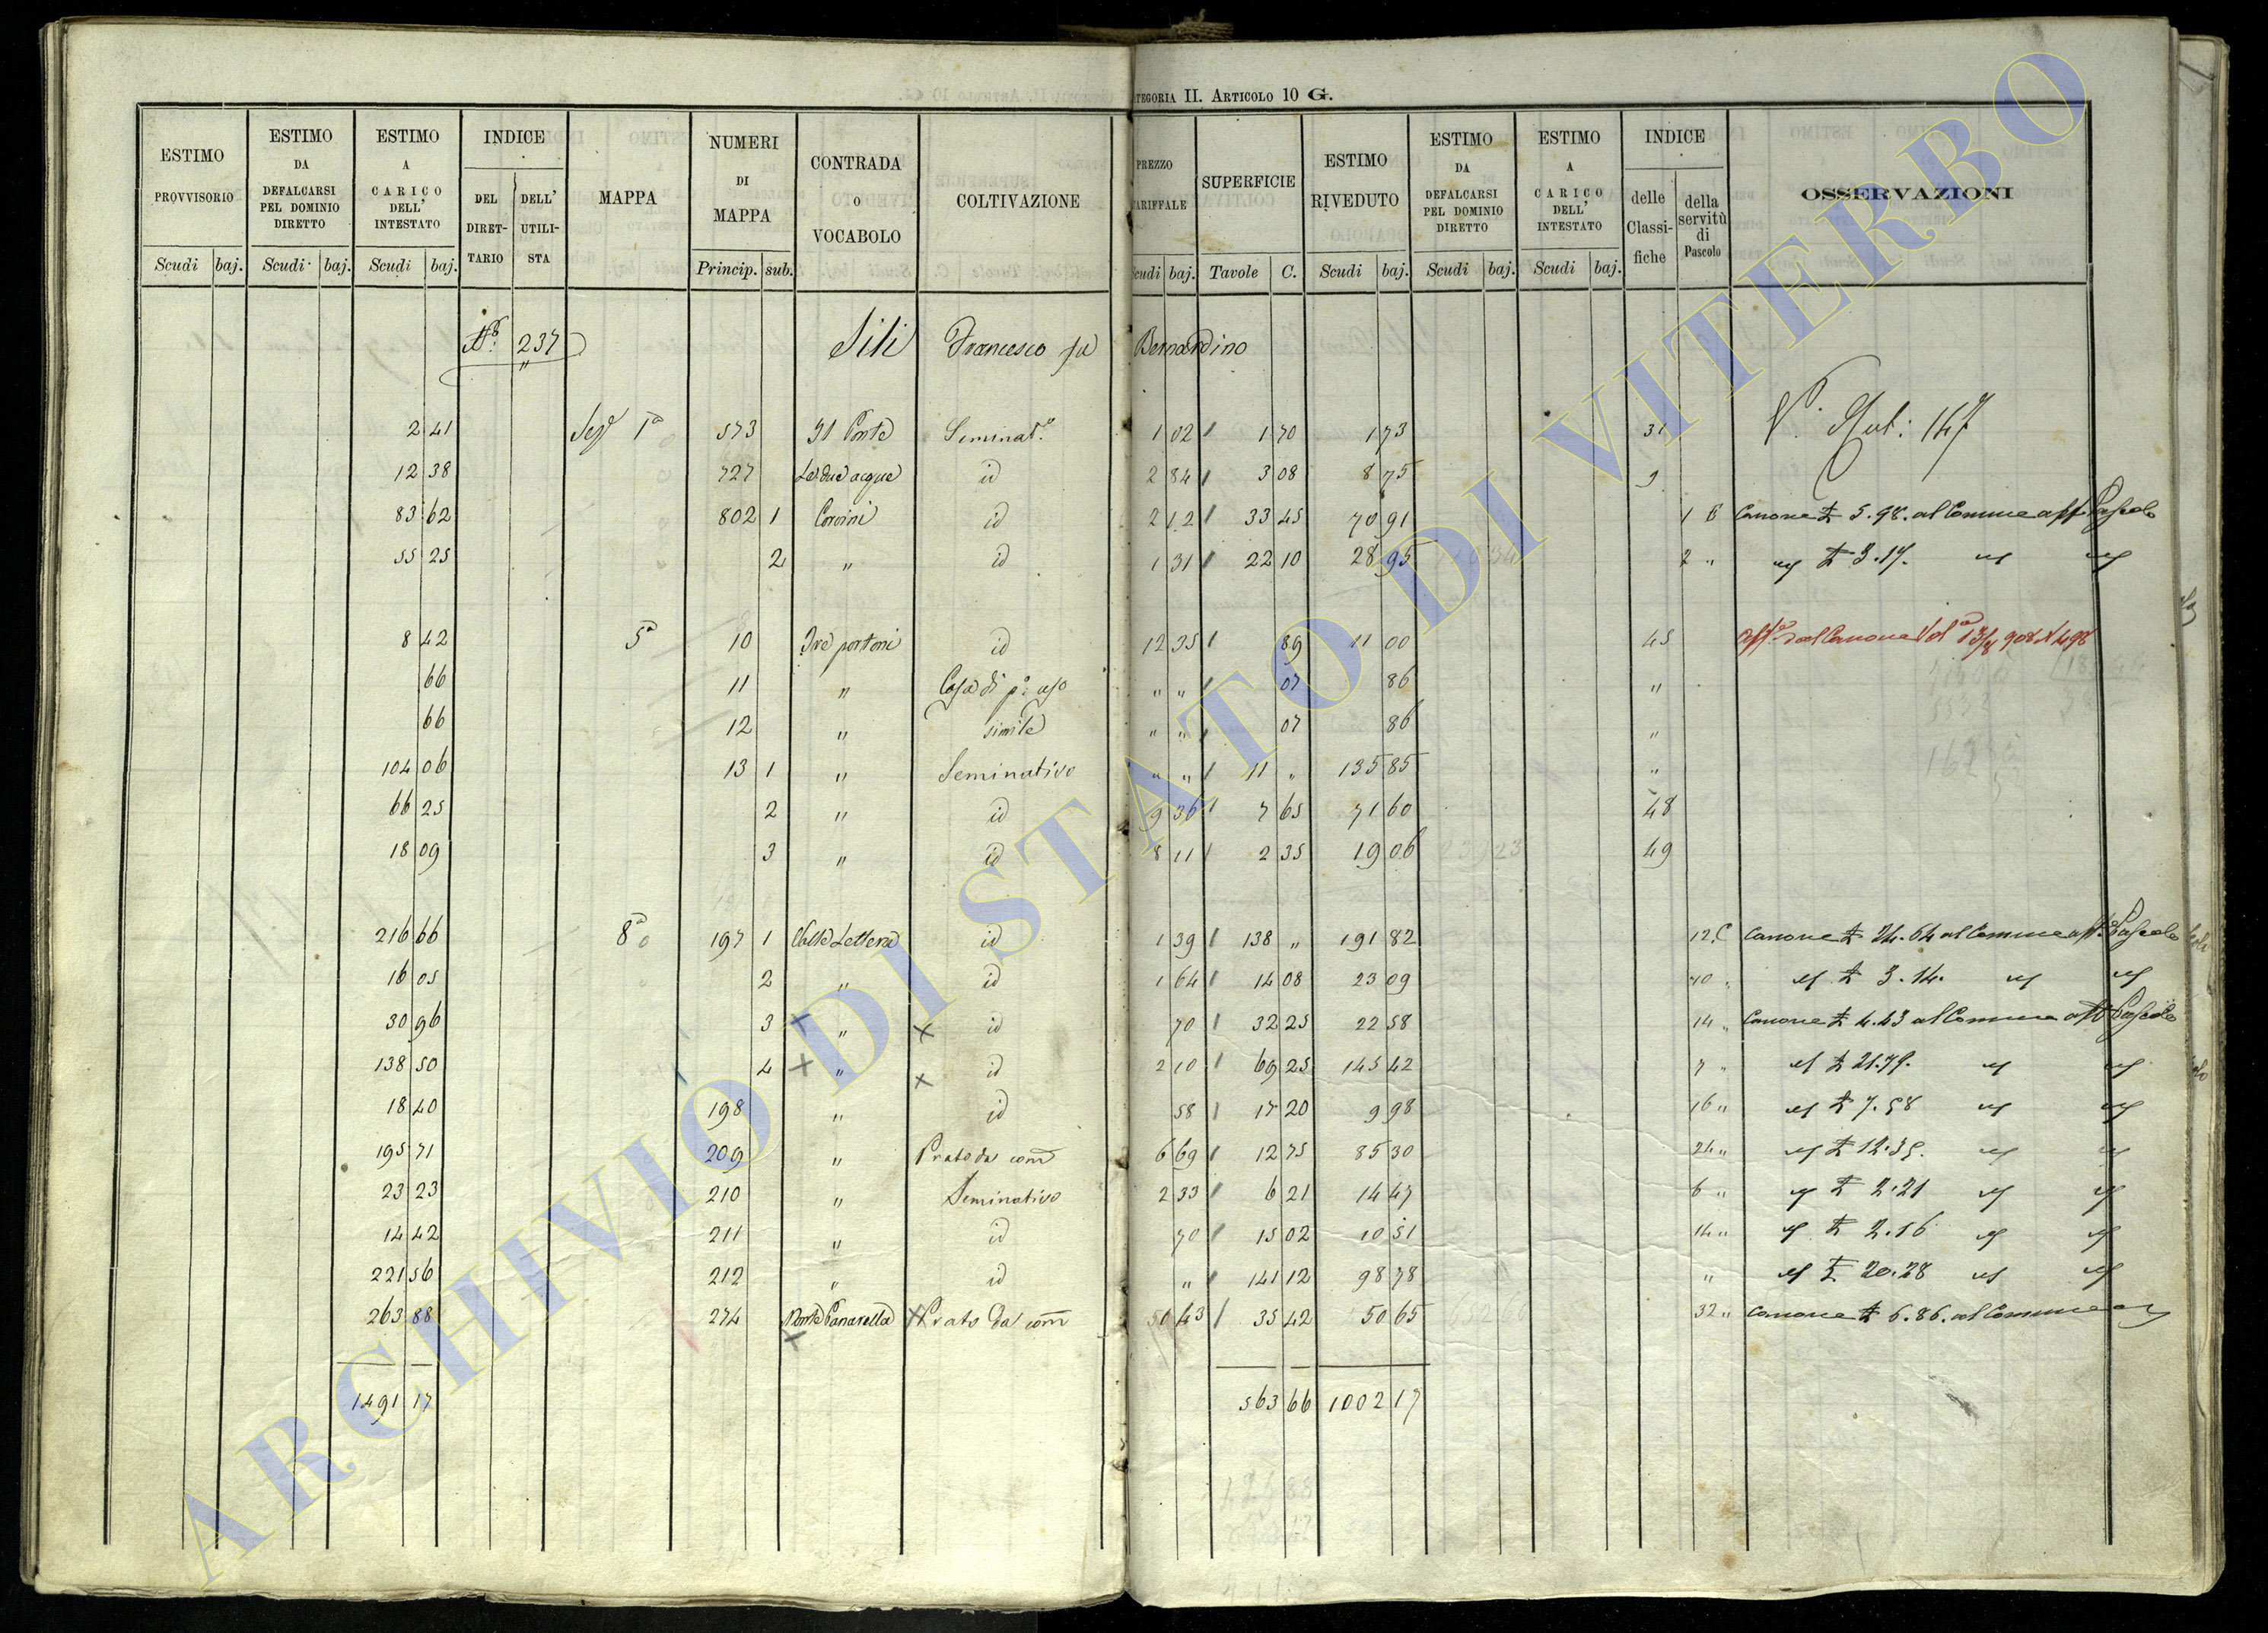 CATEGORIA II. ARTICOLO 10 G.
ESTIMO PROVVISORIO | ESTIMO DA DEFALCARSI PEL DOMINIO DIRETTO | ESTIMO A CARICO DELL' INTESTATO | INDICE DEL DIRETTARIO | DELL' UTILISTA | MAPPA | NUMERI DI MAPPA | CONTRADA O VOCABOLO | COLTIVAZIONE | PREZZO TARIFFALE | SUPERFICIE | ESTIMO RIVEDUTO | ESTIMO DA DEFALCARSI PEL DOMINIO DIRETTO | ESTIMO A CARICO DELL' INTESTATO | INDICE delle Classifiche | della servitù di Pascolo | OSSERVAZIONI
Scudi baj. | Scudi baj. | Scudi baj. | Princip. sub. | Scudi baj. | Tavole C. | Scudi baj. | Scudi baj. | Scudi baj.
N.º 237 Sili Francesco fu Bernardino
2 41 Sezº 1ª 573 Il Ponte Seminat.º 1 02 1 70 1 73 31 V. Mut: 147
12 38 727 Le due acque id 2 84 3 08 8 75 9
83 62 802 1 Corvini id 2 12 33 45 70 91 1 B Canone £ 5.98. al Comune aff. Pascolo
55 25 2 " id 1 31 22 10 28 95 2 " " £ 3.17. " "
8 42 5ª 10 Tre portoni id 12 35 89 11 00 45
66 11 " Casa di pº uso " " 07 86 "
66 12 " simile " " 07 86 "
104 06 13 1 " Seminativo " " 11 " 135 85 "
66 25 2 " id 9 36 7 65 71 60 48
18 09 3 " id 8 11 2 35 19 06 49
216 66 8ª 197 1 Valle Lettera id 1 39 138 " 191 82 12 C Canone £ 24.64 al Comune aff. Pascolo
16 05 2 " id 1 64 14 08 23 09 10 " " £ 3.14. " "
30 96 3 " id 70 32 25 22 58 14 " Canone £ 4.43 al Comune aff. Pascolo
138 50 4 " id 2 10 69 25 145 42 7 " " £ 21.79. " "
18 40 198 " id 58 17 20 9 98 16 " " £ 7.58 " "
195 71 209 " Prato da com 6 69 12 75 85 30 24 " " £ 12.35. " "
23 23 210 " Seminativo 2 33 6 21 14 47 6 " " £ 2.21 " "
14 42 211 " id 70 15 02 10 51 14 " " £ 2.16 " "
221 56 212 " id " 141 12 98 78 " " £ 20.28 " "
263 88 274 Ponte Panarella Prato da com 35 42 50 65 32 " Canone £ 6.86. al Comune "
1491 17 563 66 1002 17
ARCHIVIO DI STATO DI VITERBO